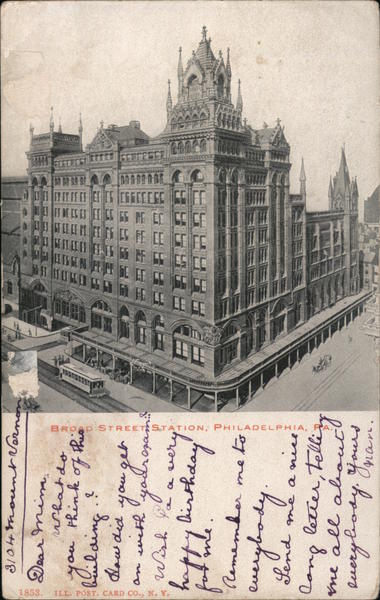 BROAD STREET STATION, PHILADELPHIA, PA.
3104 Mount Vernon
Dear Mim,
What do
you think of the
building?
How did you get
on with your exam?
Wish a a very
happy birthday
for me.
Remember me to
everybody.
Send me a nice
long letter, telling
me all about
everybody. Yours
1853. ILL. POST. CARD CO., N. Y.